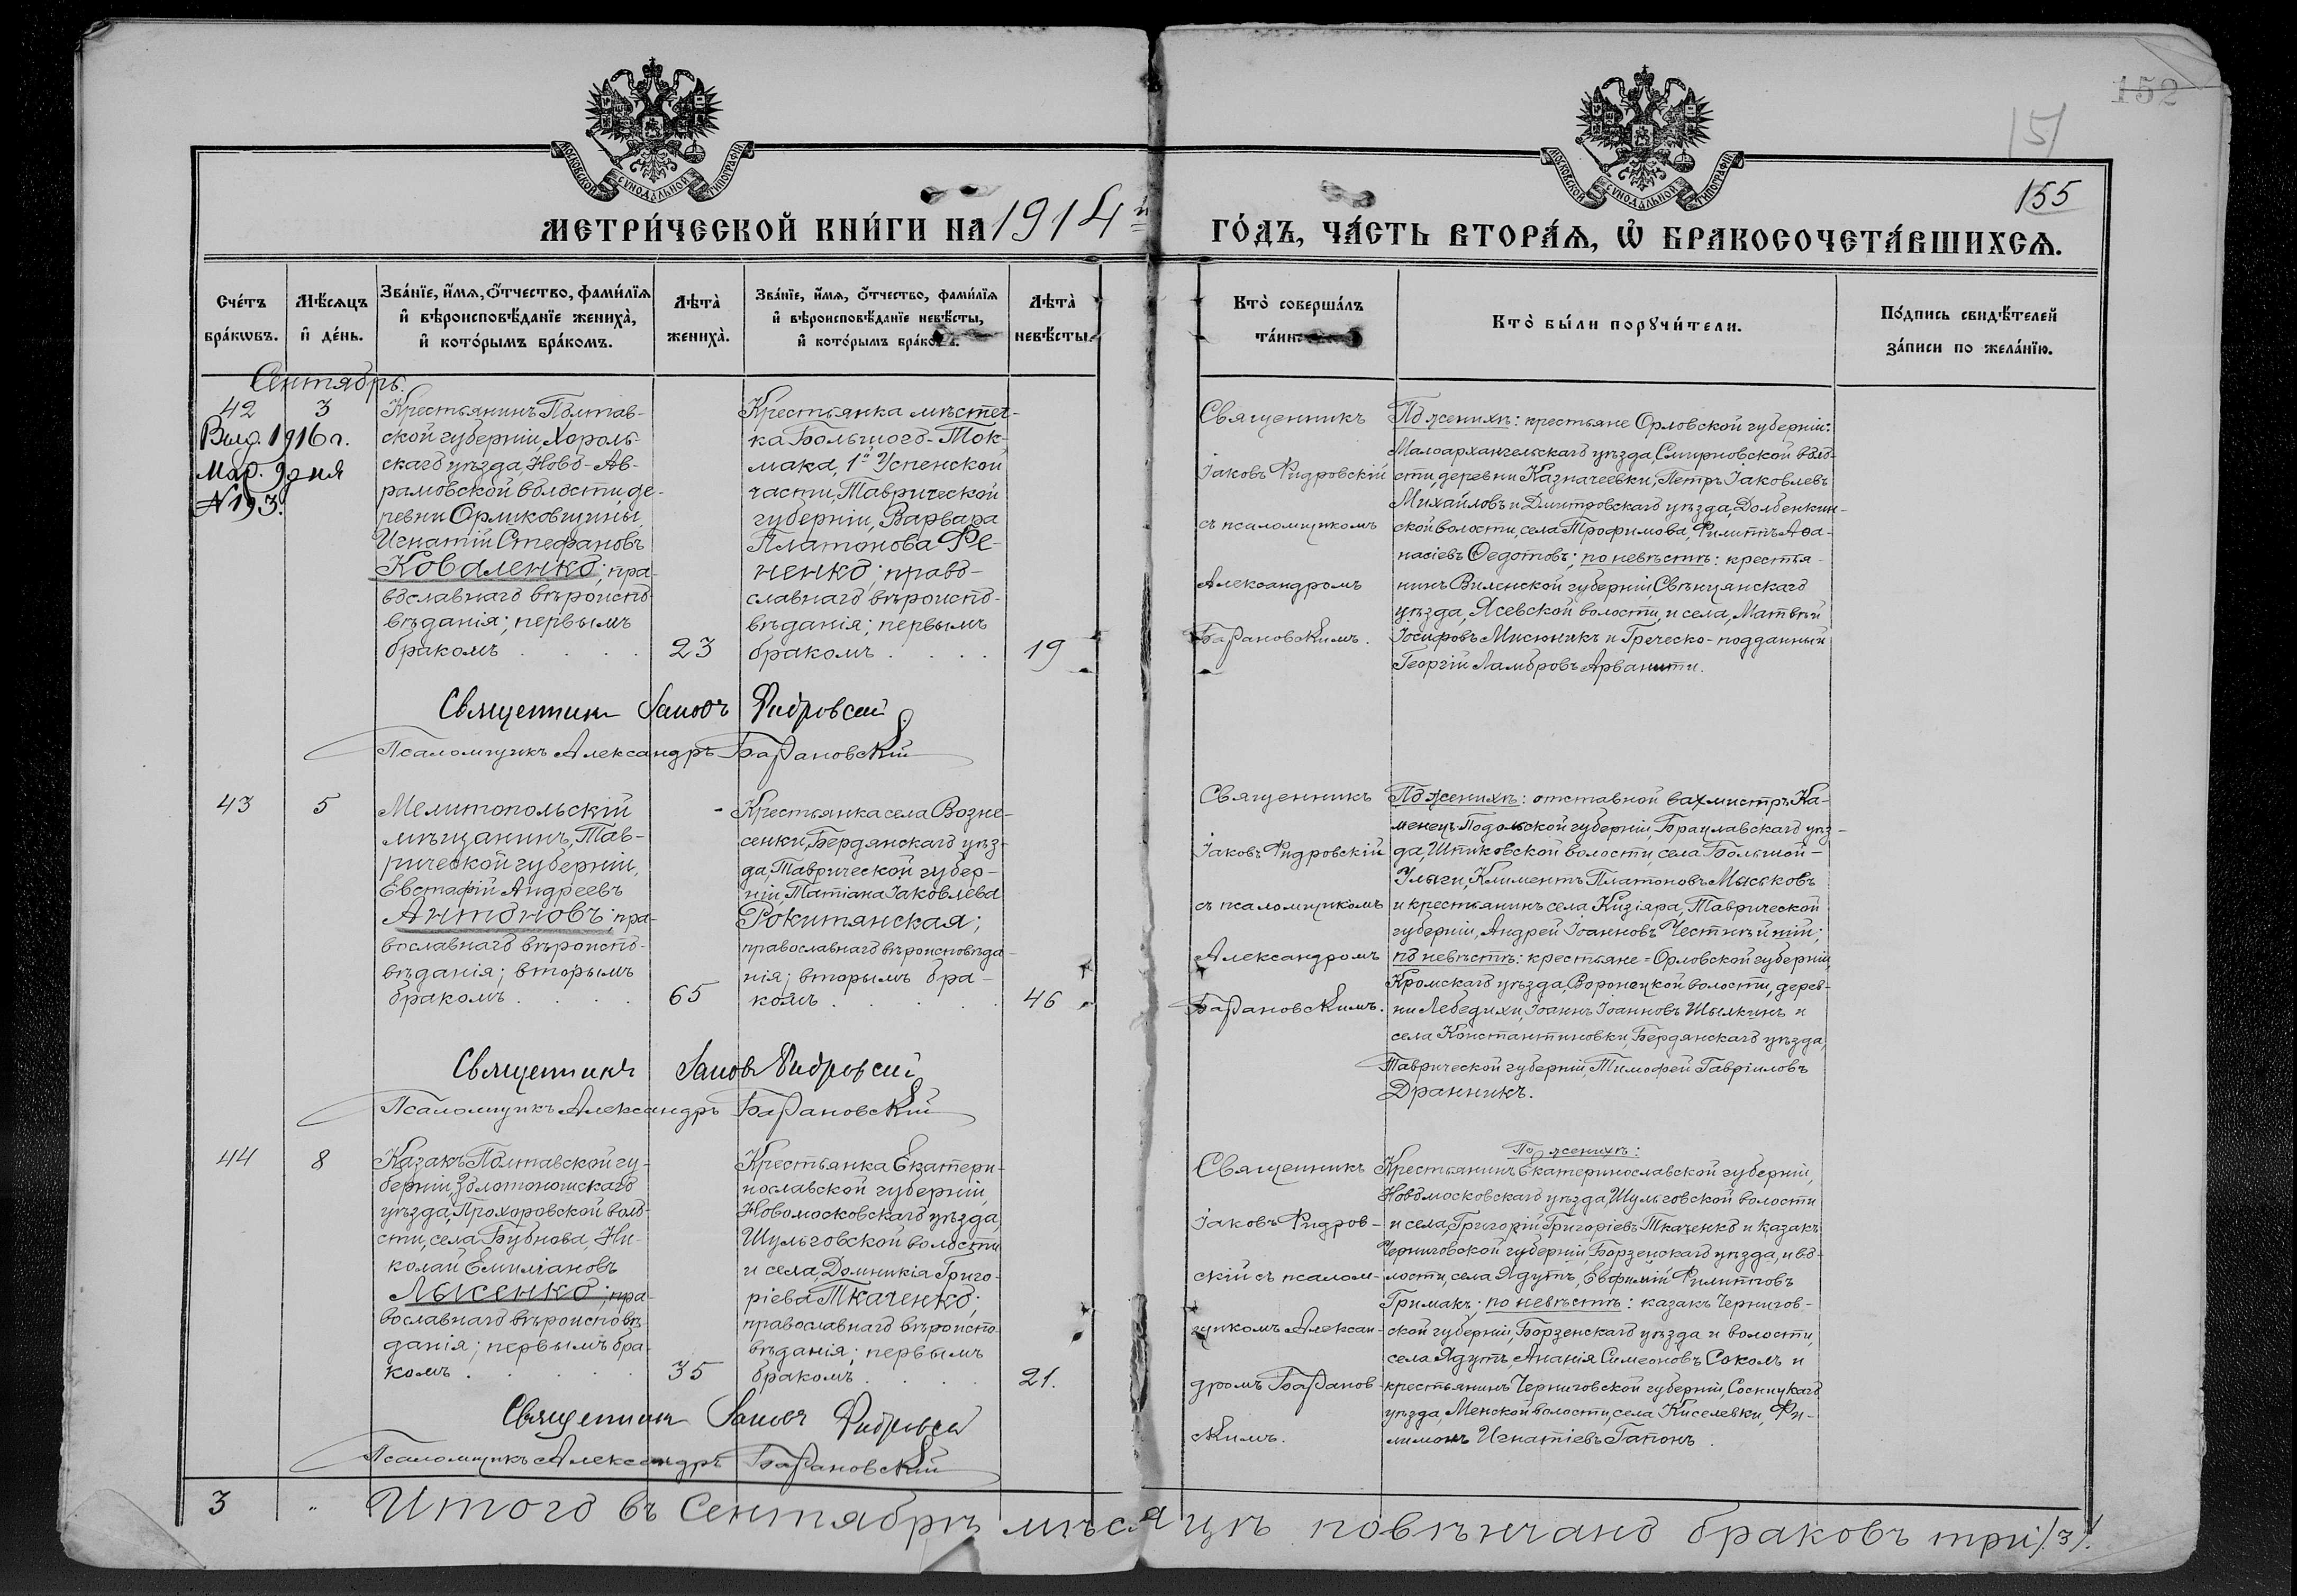 152
151
155
МОСКОВСКОЙ СѴНОДАЛЬНОЙ ТИПОГРАФІИ
МОСКОВСКОЙ СѴНОДАЛЬНОЙ ТИПОГРАФІИ
МЕТРИ́ЧЕСКОЙ КНИ́ГИ НА 1914й ГО́ДЪ, ЧА́СТЬ ВТОРА́Ѧ, Ѿ БРАКОСОЧЕТА́ВШИХСѦ.
Сче́тъ
бра́кѡвъ.
Мѣ́сѧцъ
и҆ де́нь.
Зва́нїе, и҆́мѧ, ѻ҆́тчество, фами́лїѧ
и҆ вѣроисповѣ́данїе женихà,
и҆ кото́рымъ бра́комъ.
Лѣ́та
женихà.
Зва́нїе, и҆́мѧ, ѻ҆́тчество, фами́лїѧ
и҆ вѣроисповѣ́данїе невѣ́сты,
и҆ кото́рымъ бра́комъ.
Лѣ́та
невѣ́сты.
Кто̀ соверша́лъ
та́ин
Кто̀ бы́ли порꙋчи́тели.
По́дпись свидѣ́телей
за́писи по жела́нїю.
Сентябрь.
42
3
Выд. 1916 г.
Мар. 9 дня
№ 193.
Крестьянинъ Полтав-
ской губерніи, Хороль-
скаго уѣзда, Ново-Ав-
рамовской волости, де-
ревни Орликовщины,
Игнатій Стефановъ
Коваленко; пра-
вославнаго вѣроиспо-
вѣданія; первымъ
бракомъ . . . .
23
Крестьянка мѣстеч-
ка Большого-Ток-
мака, 1й Успенской
части, Таврической
губерніи, Варвара
Платонова Фе-
ненко; право-
славнаго вѣроиспо-
вѣданія; первымъ
бракомъ . . . .
19
Священникъ
Іаковъ Фидровскій
съ псаломщикомъ
Александромъ
Барановскимъ.
По женихѣ: крестьяне Орловской губерніи:
Малоархангельскаго уѣзда, Смирновской воло-
сти, деревни Казначеевки, Петръ Іаковлевъ
Михайловъ и Дмитровскаго уѣзда, Долбенкин-
ской волости, села Трофимова, Филиппъ Аѳа-
насіевъ Ѳедотовъ; по невѣстѣ: крестья-
нинъ Виленской губерніи, Свѣнцянскаго
уѣзда, Ясевской волости, и села, Матвѣй
Іосифовъ Мисюникъ и Греческо-подданный
Георгій Ламбровъ Арванити.
Священникъ Іаковъ Фидровскій
Псаломщикъ Александръ Барановскій
43
5
Мелитопольскій
мѣщанинъ, Тав-
рической губерніи,
Евстафій Андреевъ
Антоновъ; пра-
вославнаго вѣроиспо-
вѣданія; вторымъ
бракомъ . . . .
65
Крестьянка села Возне-
сенки, Бердянскаго уѣз-
да, Таврической губер-
ніи, Татіана Іаковлева
Рокитянская;
православнаго вѣроисповѣда-
нія; вторымъ бра-
комъ . . . .
46
Священникъ
Іаковъ Фидровскій
съ псаломщикомъ
Александромъ
Барановскимъ.
По женихѣ: отставной вахмистръ Ка-
менецъ-Подольской губерніи, Брацлавскаго уѣз-
да, Шпиковской волости, села Большой-
Улыги, Климентъ Платоновъ Мыськовъ
и крестьянинъ села Кизіяра, Таврической
губерніи, Андрей Іоанновъ Честнѣйшій;
по невѣстѣ: крестьяне = Орловской губерніи,
Кромскаго уѣзда, Воронецкой волости, дерев-
ни Лебедихи, Іоаннъ Іоанновъ Шылкинъ и
села Константиновки, Бердянскаго уѣзда,
Таврической губерніи, Тимофей Гавріиловъ
Дранникъ.
Священникъ Іаковъ Фидровскій
Псаломщикъ Александръ Барановскій
44
8
Казакъ Полтавской гу-
берніи, Золотоношскаго
уѣзда, Прохоровской воло-
сти, села Бубнова, Ни-
колай Емиліановъ
Лысенко; пра-
вославнаго вѣроисповѣ-
данія; первымъ бра-
комъ . . . . .
35
Крестьянка Екатери-
нославской губерніи,
Новомосковскаго уѣзда,
Шульговской волости
и села, Домникія Григо-
ріева Ткаченко;
православнаго вѣроиспо-
вѣданія; первымъ
бракомъ . . . .
21.
Священникъ
Іаковъ Фидров-
скій съ псалом-
щикомъ Алексан-
дромъ Баранов-
скимъ.
По женихѣ:
Крестьянинъ Екатеринославской губерніи,
Новомосковскаго уѣзда, Шульговской волости
и села, Григорій Григоріевъ Ткаченко и казакъ
Черниговской губерніи, Борзенскаго уѣзда, и во-
лости, села Ядутъ, Евфимій Филипповъ
Гримакъ; по невѣстѣ: казакъ Чернигов-
ской губерніи, Борзенскаго уѣзда и волости,
села Ядутъ, Ананія Симеоновъ Соколъ и
крестьянинъ Черниговской губерніи, Сосницкаго
уѣзда, Менской волости, села Киселевки, Фи-
лимонъ Игнатіевъ Гапонъ.
Священникъ Іаковъ Фидровскій
Псаломщикъ Александръ Барановскій
3 " Итого въ Сентябрѣ мѣсяцѣ повѣнчано браковъ три /3/.